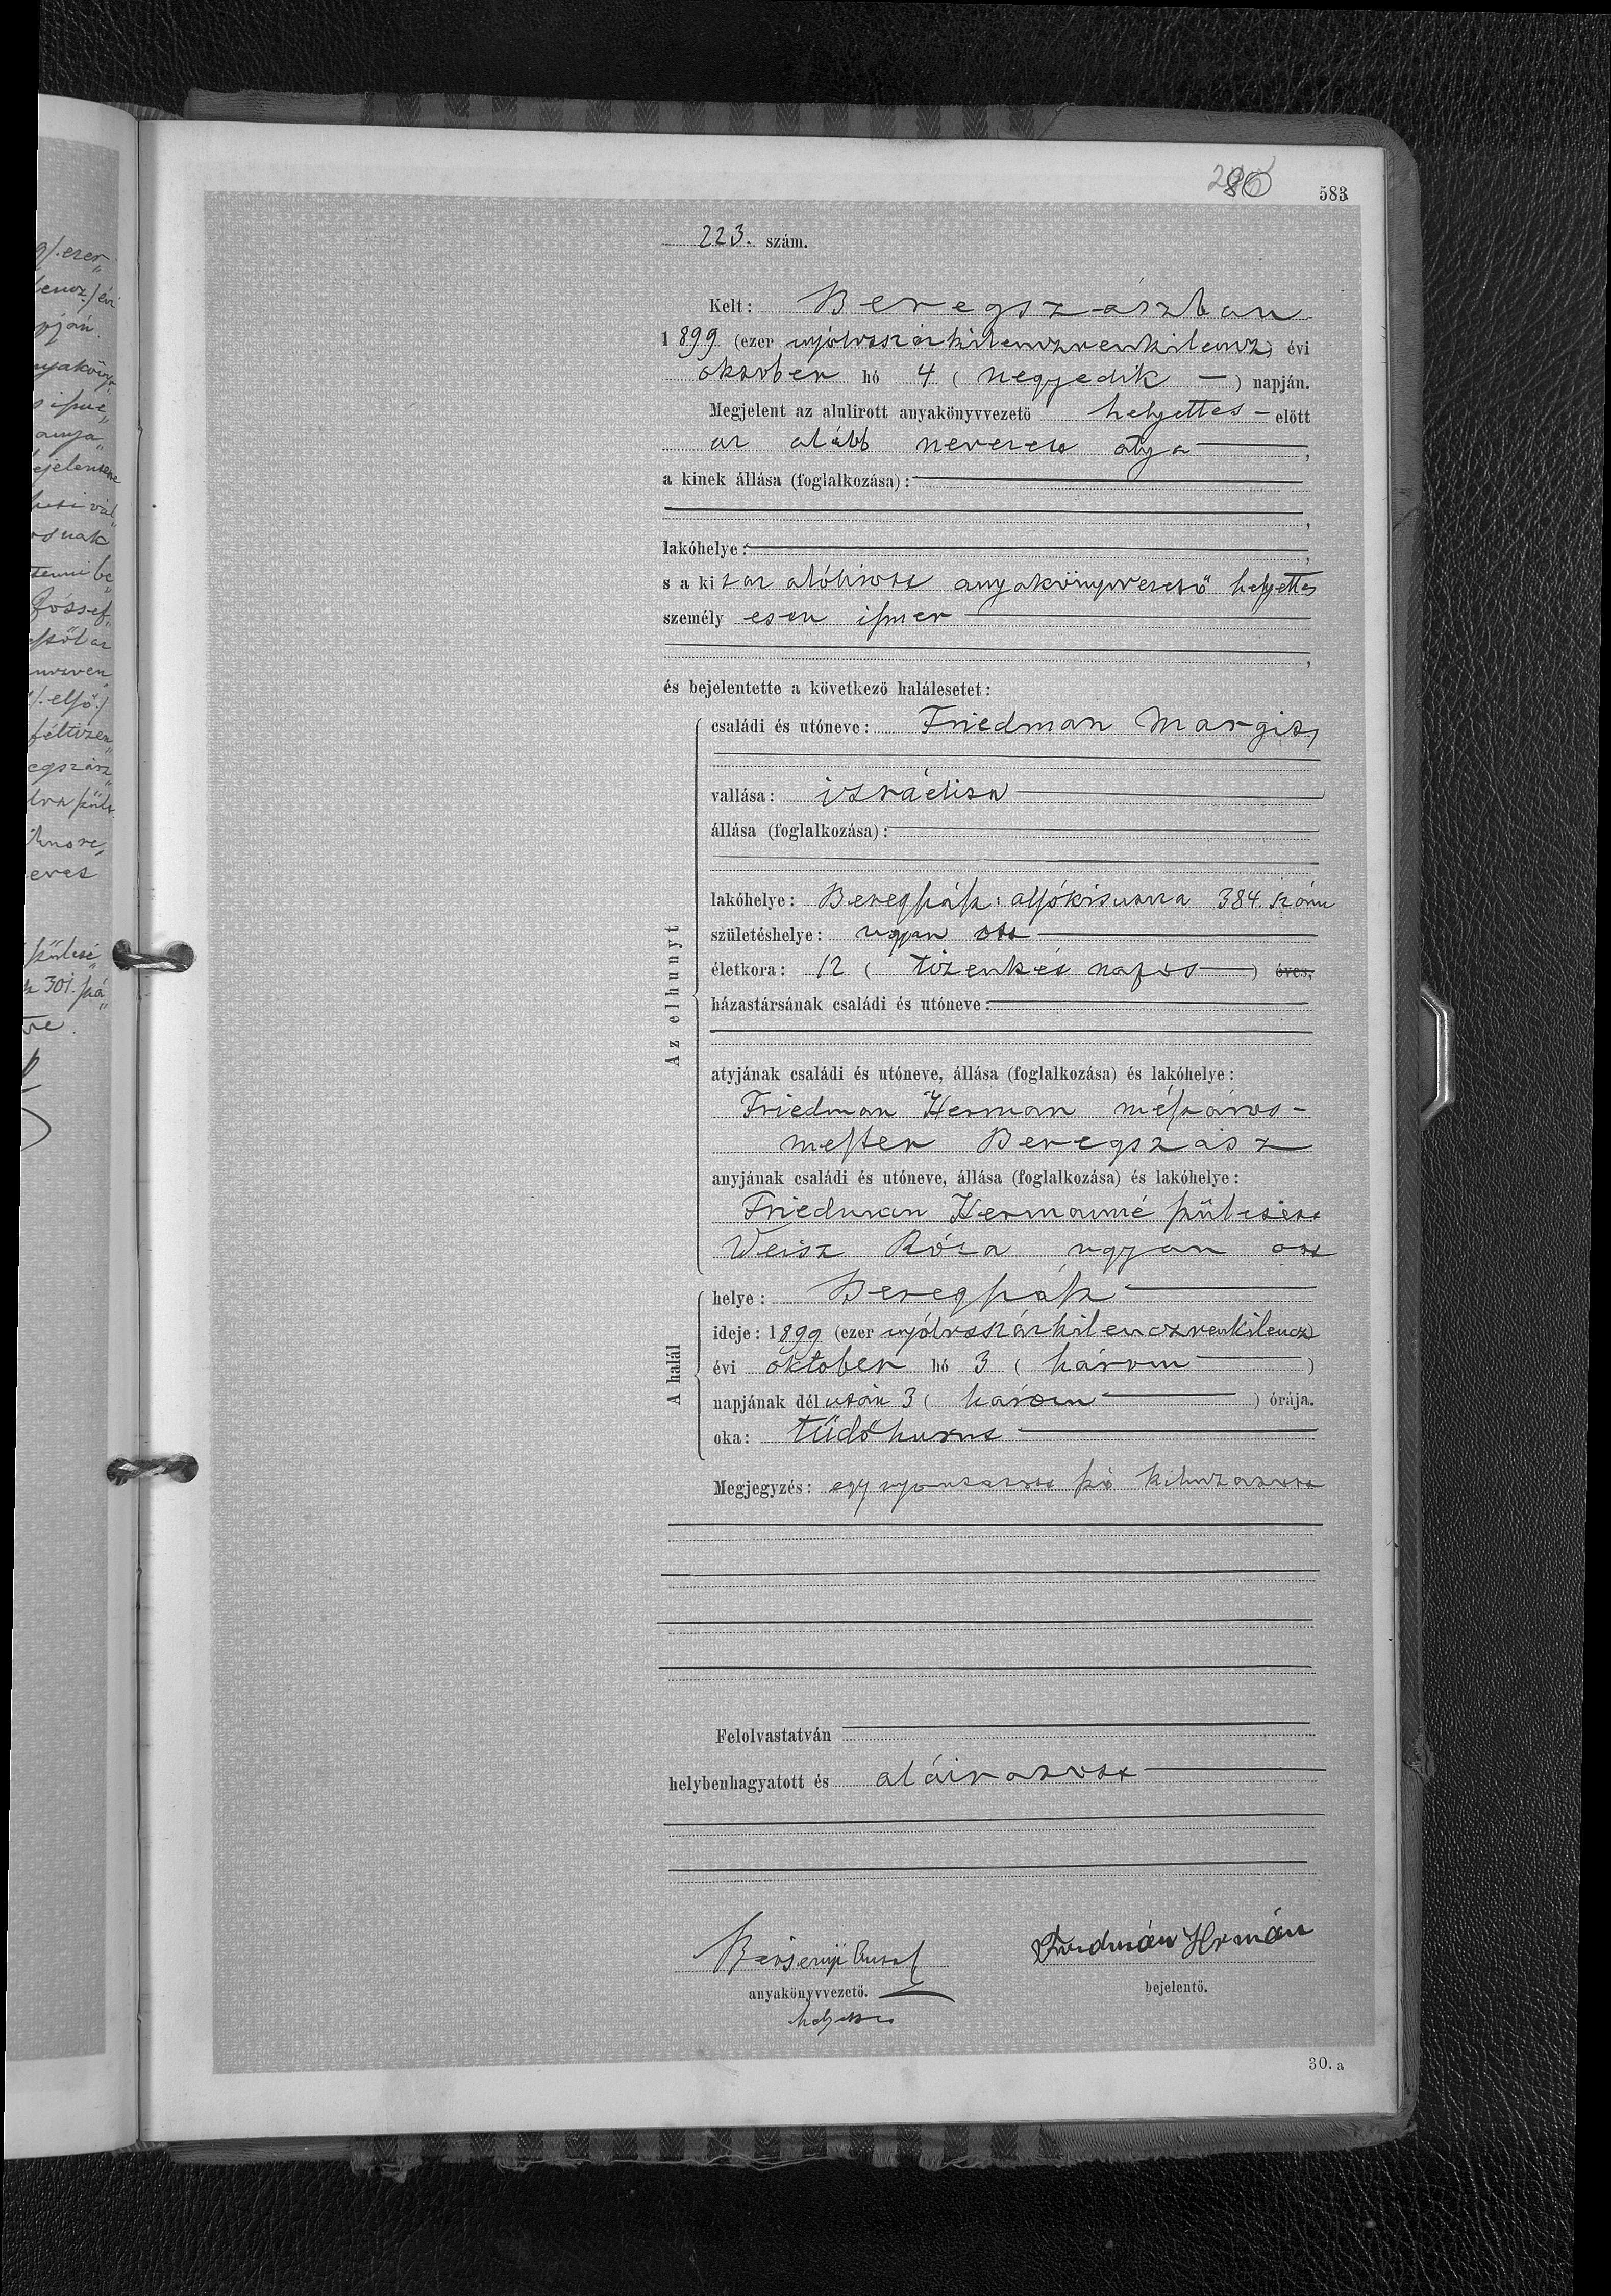 g/. ezer„
pján.
nyakönyv„
anya„
ejelentette
snak
József„
/.első./
egszász„
eves
583
223. szám.
Kelt: Beregszászban
1899 (ezer nyolczszázkilenczvenkilencz) évi
oktober hó 4 (negyedik —) napján.
Megjelent az alulirott anyakönyvvezető helyettes — előtt
az alább nevezett atya —,
a kinek állása (foglalkozása): —
lakóhelye: —
s a kit az alólirott anyakönyvvezető helyettes
személyesen ismer —
és bejelentette a következő halálesetet:
Az elhunyt
családi és utóneve: Friedman Margit,
vallása: izráelita —
állása (foglalkozása): —
lakóhelye: Beregszász, alsókisutcza 384. szám
születéshelye: ugyan ott —
életkora: 12 (tizenkét napos —) éves,
házastársának családi és utóneve: —
atyjának családi és utóneve, állása (foglalkozása) és lakóhelye:
Friedman Herman mészáros-
mester Beregszász
anyjának családi és utóneve, állása (foglalkozása) és lakóhelye:
Friedman Hermanné született
Veisz Róza ugyan ott
A halál
helye: Beregszász —
ideje: 1899 (ezer nyolczszázkilenczvenkilencz)
évi oktober hó 3 (három —)
napjának délután 3 (három —) órája.
oka: tüdőhurut —
Megjegyzés: egy nyomtatott szó kihuzatott
Felolvastatván —
helybenhagyatott és aláiratott —
anyakönyvvezető.
helyettes
Friedmán Hermán
bejelentő.
30. a